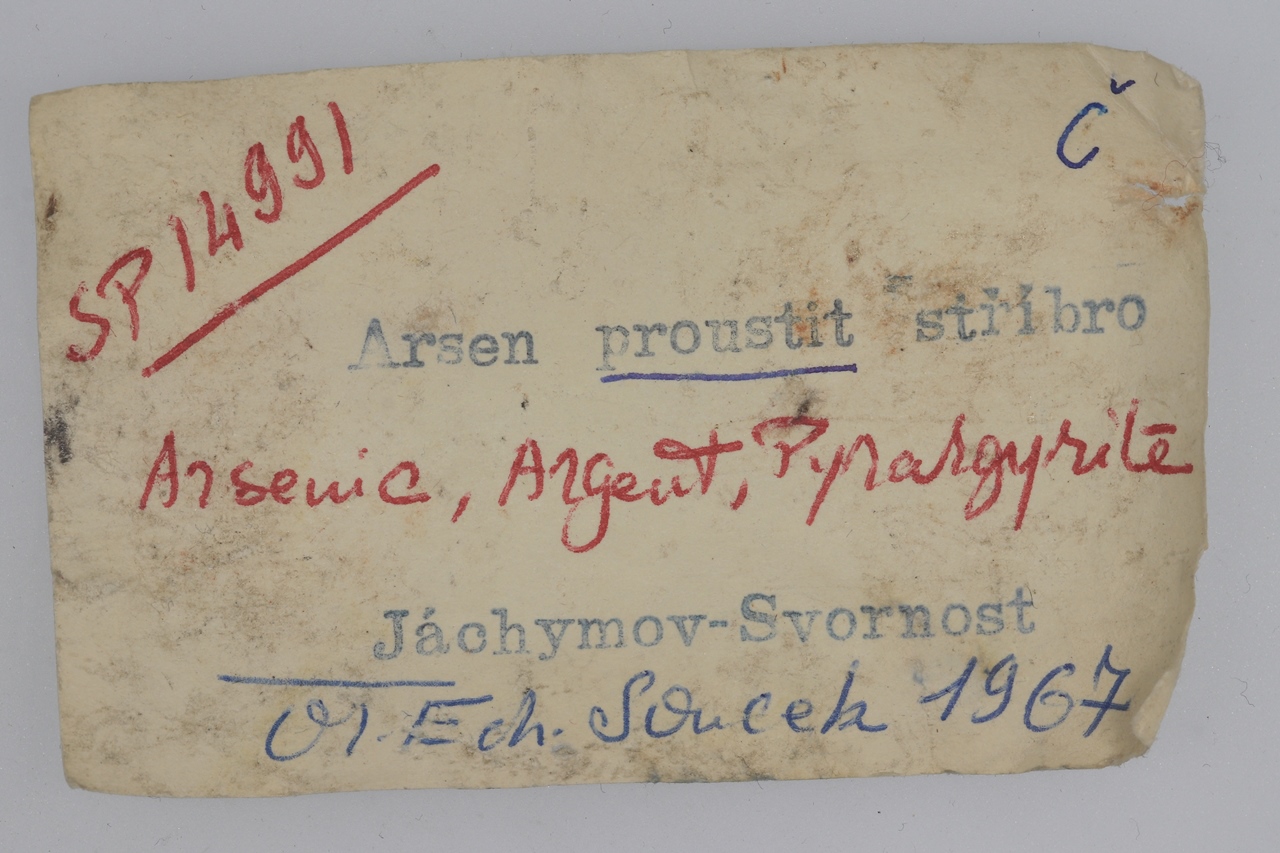 SP 14991
Č
Arsen proustit stříbro
Arsenic, Argent, Pyrargyrite
Jáchymov-Svornost
Ech. Soucek 1967